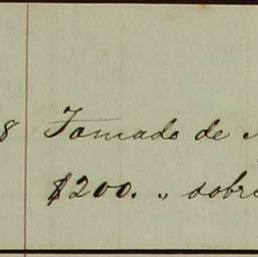 8 Tomado de
$200. " sobre